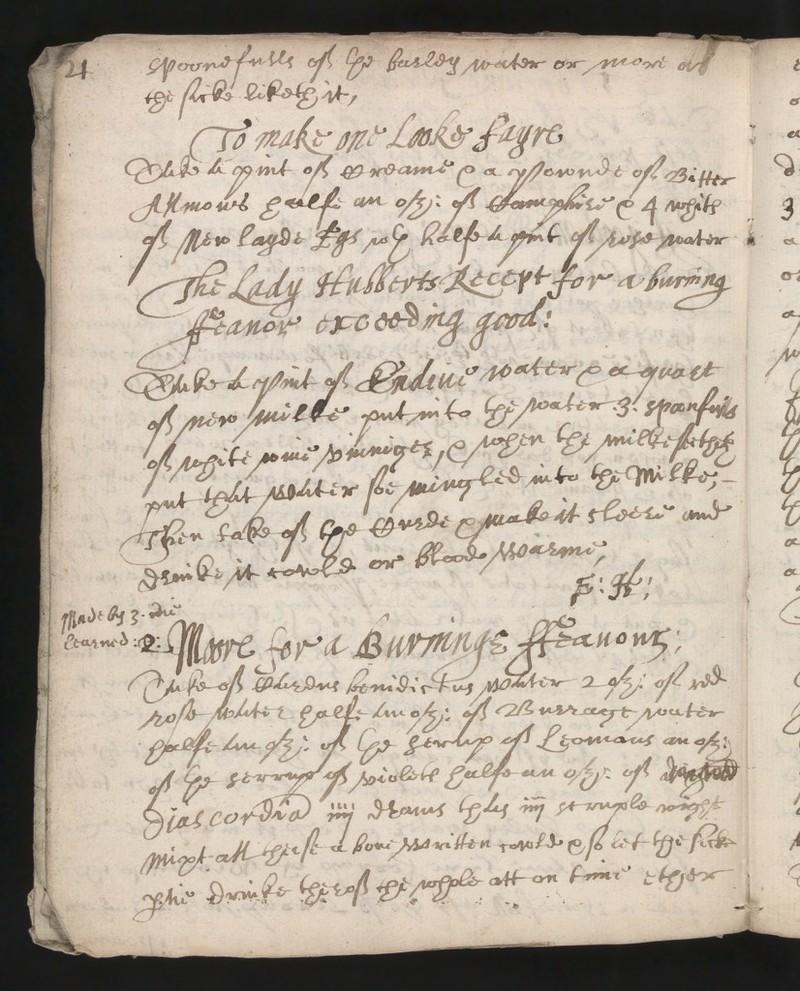 21
spoonefulls off the barley water or more as
the sicke liketh it,
To make one Looke fayre
Take a pint off Creame & a pownde off Bitter
Allmons halfe an oz: off Camphire & 4 whits
off New layde Egs wth halfe a pint off rose water
The Lady Hubberts Recept for a burning
ffeanor exceeding good:
Take a pint off Endiue water & a quart
off new milke put into the water .3. sponfulls
off white wine vinniger, & when the milke setheth
put that water soe mingled into the Milke,
Then take off the Curde & make it cleere and
drinke it cowld or blood warme,
E: H:
Made by 3. die
learned: D:
2. Moore for a Burninge ffeanour;
Take off Cardus benidictus water 2 oz: off red
rose water halfe an oz: off Burrage water
halfe an oz: off the serrup off Leomans an oz:
off the serrup off violets halfe an oz: off
Diascordia iiij drams this iiij scruple wight
mixt all theise aboue written cowld & so let the sicke
ptie drinke theroff the whole att on time ether